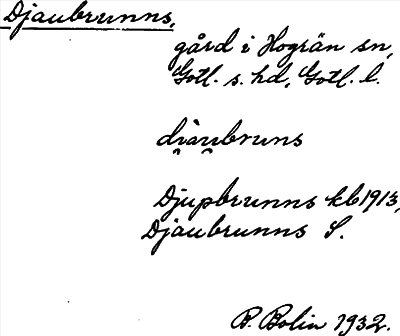 Djaubrunns,
gård i Hogrän sn,
Gotl. s. hd, Gotl. l.
di̯àu̯bruns
Djupbrunns kb 1913,
Djaubrunns S.
P. Bolin 1932.